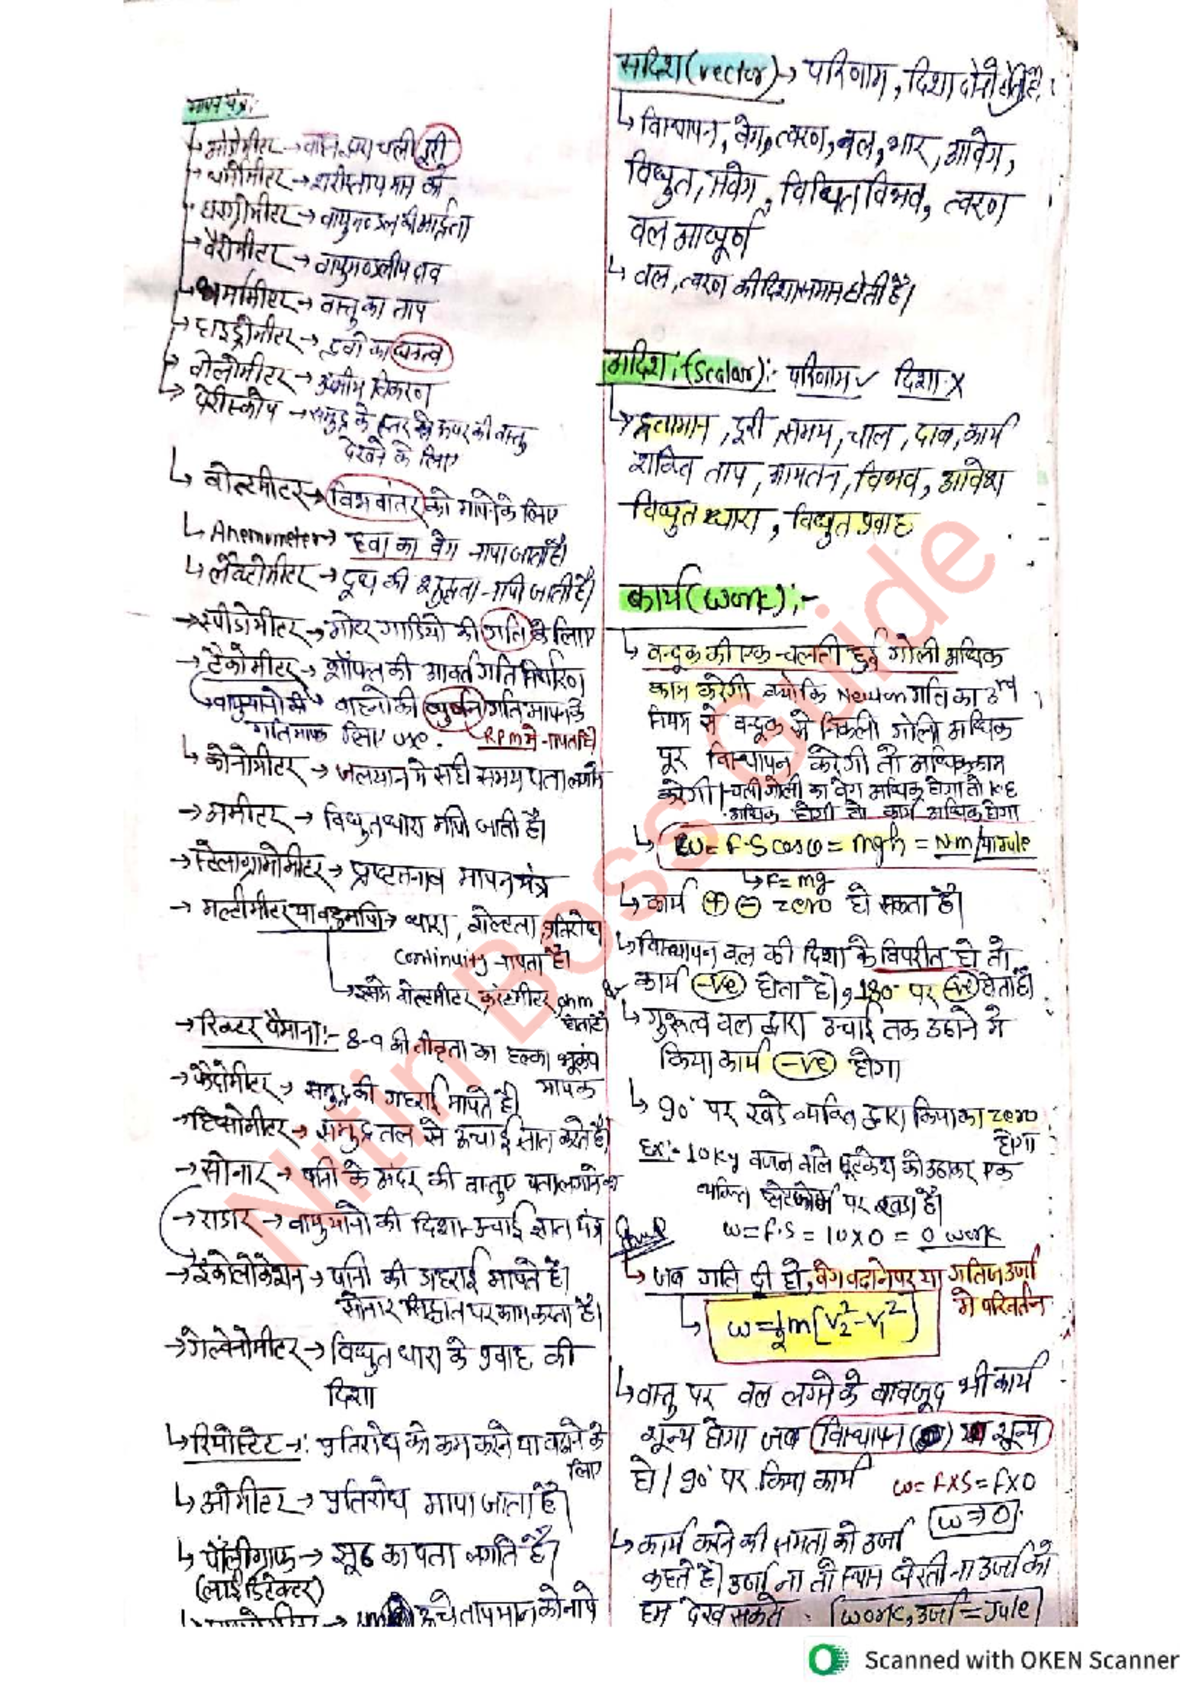 मापन यंत्र:-
ओडोमीटर → वाहन द्वारा चली दूरी
थर्मोमीटर → शरीर ताप मापने को
हाइग्रोमीटर → वायुमण्डल की आर्द्रता
बैरोमीटर → वायुमण्डलीय दाब
थर्मामीटर → वस्तु का ताप
हाइड्रोमीटर → द्रवो का घनत्व
बोलोमीटर → ऊष्मीय विकिरण
पेरीस्कोप → समुद्र के स्तर से ऊपर की वस्तु
देखने के लिए
वोल्टमीटर → विभवांतर को मापने के लिए
Anemometer → हवा का वेग नापा जाता है।
लैक्टोमीटर → दूध की शुद्धता नापी जाती है।
स्पीडोमीटर → मोटर गाडियो की गति के लिए
टैकोमीटर → शॉफ्ट की आवर्त गति निर्धारण
वायुयानो मे वाहनो की घुर्णन गति मापन के
गतिमापक लिए use. RPM मे नापता है
क्रोनोमीटर → जलयान मे सही समय पता लगाने
अमीटर → विद्युत धारा मापी जाती है।
→ पृष्ठ तनाव मापन यंत्र
मल्टीमीटर या बहुमापी → धारा, वोल्टता, प्रतिरोध
Continuity नापता है।
इसमे वोल्टमीटर, करंटमीटर, ohm
होता है
रिक्टर पैमाना:- 8-9 की तीव्रता का हल्का भूकंप
मापक
फैदोमीटर → समुद्र की गहराई मापते है।
हिप्सोमीटर → समुद्र तल से ऊंचाई ज्ञात करते है।
सोनार → पानी के अंदर की वस्तुए पता लगाने को
राडार → वायुयानो की दिशा-ऊंचाई ज्ञात यंत्र
इकोलोकेशन → पानी की गहराई मापते है।
सोनार सिद्धांत पर काम करता है।
गेल्वेनोमीटर → विद्युत धारा के प्रवाह की
दिशा
रियोस्टेट → प्रतिरोध को कम करने या बढाने के
लिए
ओमीटर → प्रतिरोध मापा जाता है।
पॉलीग्राफ → झूठ का पता लगाते है।
(लाई डिटेक्टर)
ऊंचे तापमान को नापे
सदिश (vector) → परिणाम, दिशा दोनो होती है।
विस्थापन, वेग, त्वरण, बल, भार, आवेग,
विद्युत, संवेग, विभव, त्वरण
बल आघूर्ण
बल, त्वरण की दिशा समान होती है।
अदिश (Scalar):- परिणाम ✓ दिशा X
द्रव्यमान, दूरी, समय, चाल, दाब, कार्य
शक्ति ताप, आयतन, विभव, आवेश
विद्युत धारा, विद्युत प्रवाह
कार्य (work):-
बन्दूक की एक चलती हुई गोली अधिक
काम करेगी क्योकि Newton गति का 3rd
नियम से बन्दूक से निकली गोली अधिक
दूर विस्थापन करेगी तो अधिक काम
करेगी। चली गोली का वेग अधिक होगा तो K.E
अधिक होगी तो कार्य अधिक होगा
W = F·S cosθ = mgh = N·m/
F = mg
कार्य ⊕ ⊖ zero हो सकता है।
विस्थापन बल की दिशा के विपरीत हो तो
कार्य -ve होता है, 180° पर -ve होता है।
गुरूत्व बल द्वारा ऊंचाई तक उठाने मे
किया कार्य -ve होगा
90° पर खडे व्यक्ति द्वारा किया का zero
होगा
Ex:- 10Kg वजन वाले सूटकेश को उठाकर एक
व्यक्ति प्लेटफोर्म पर खडा है।
W = F·S = 10×0 = 0 work
जब गति दी हो, वेग बदलने पर या गतिज उर्जा
मे परिवर्तन
W = ½m[V₂² - V₁²]
वस्तु पर बल लगने के बावजूद भी कार्य
शून्य होगा जब विस्थापन शून्य
हो। 90° पर किया कार्य W = F×S = F×0
W → 0
कार्य करने की क्षमता को उर्जा
कहते है। उर्जा ना तो स्थान घेरती ना उर्जा को
हम देख सकते. work, उर्जा = Jule
Nitin Boss Guide
Scanned with OKEN Scanner